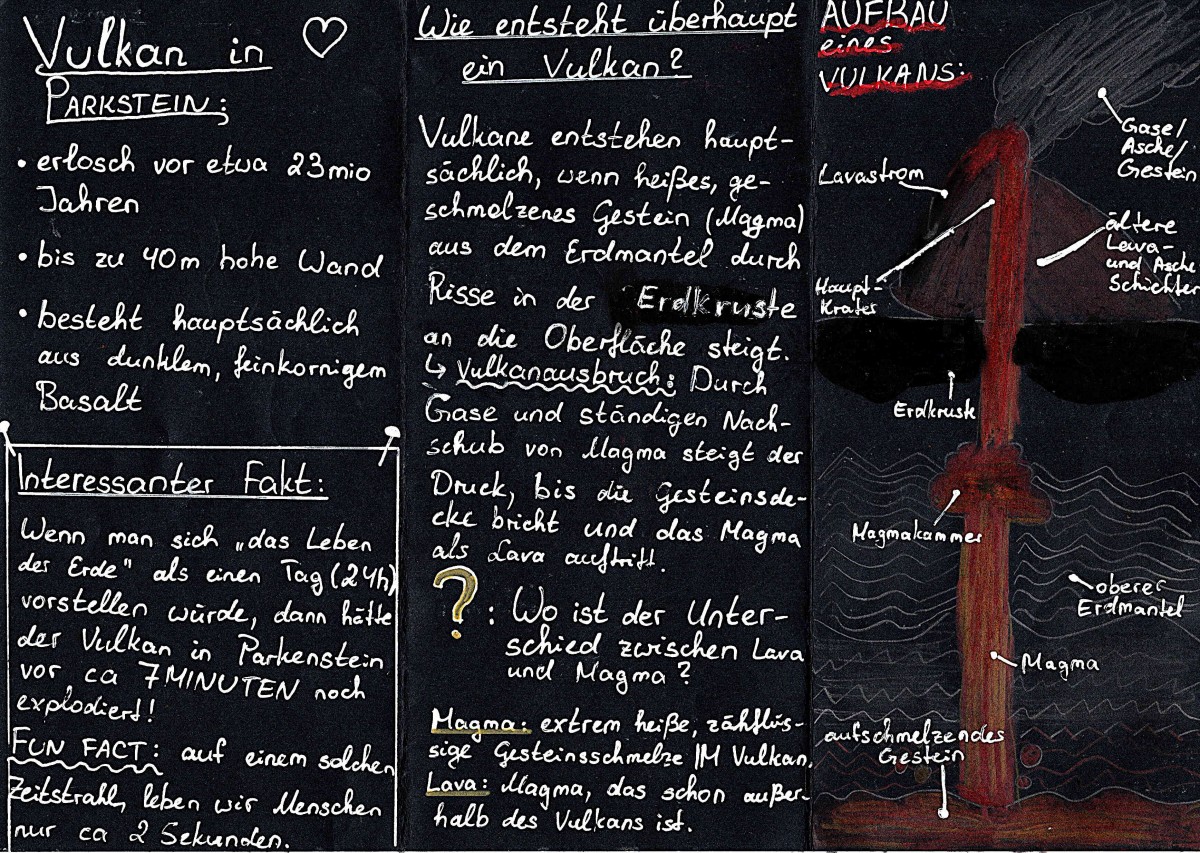 Vulkan in
PARKSTEIN:
• erlosch vor etwa 23mio
Jahren
• bis zu 40m hohe Wand
• besteht hauptsächlich
aus dunklem, feinkornigem
Basalt
Interessanter Fakt:
Wenn man sich „das Leben
der Erde" als einen Tag (24h)
vorstellen würde, dann hätte
der Vulkan in Parkenstein
vor ca 7 MINUTEN noch
explodiert!
FUN FACT: auf einem solchen
Zeitstrahl, leben wir Menschen
nur ca 2 Sekunden.
Wie entsteht überhaupt
ein Vulkan?
Vulkane entstehen haupt-
sächlich, wenn heißes, ge-
schmolzenes Gestein (Magma)
aus dem Erdmantel durch
Risse in der Erdkruste
an die Oberfläche steigt.
↳ Vulkanausbruch: Durch
Gase und ständigen Nach-
schub von Magma steigt der
Druck, bis die Gesteinsde-
cke bricht und das Magma
als Lava auftritt.
?: Wo ist der Unter-
schied zwischen Lava
und Magma?
Magma: extrem heiße, zähflüs-
sige Gesteinsschmelze IM Vulkan.
Lava: Magma, das schon außer-
halb des Vulkans ist.
AUFBAU
eines
VULKANS:
Gase/
Asche/
Gestein
Lavastrom
ältere
Lava-
und Asche
Schichten
Haupt-
Krater
Erdkruste
Magmakammer
oberer
Erdmantel
Magma
aufschmelzendes
Gestein